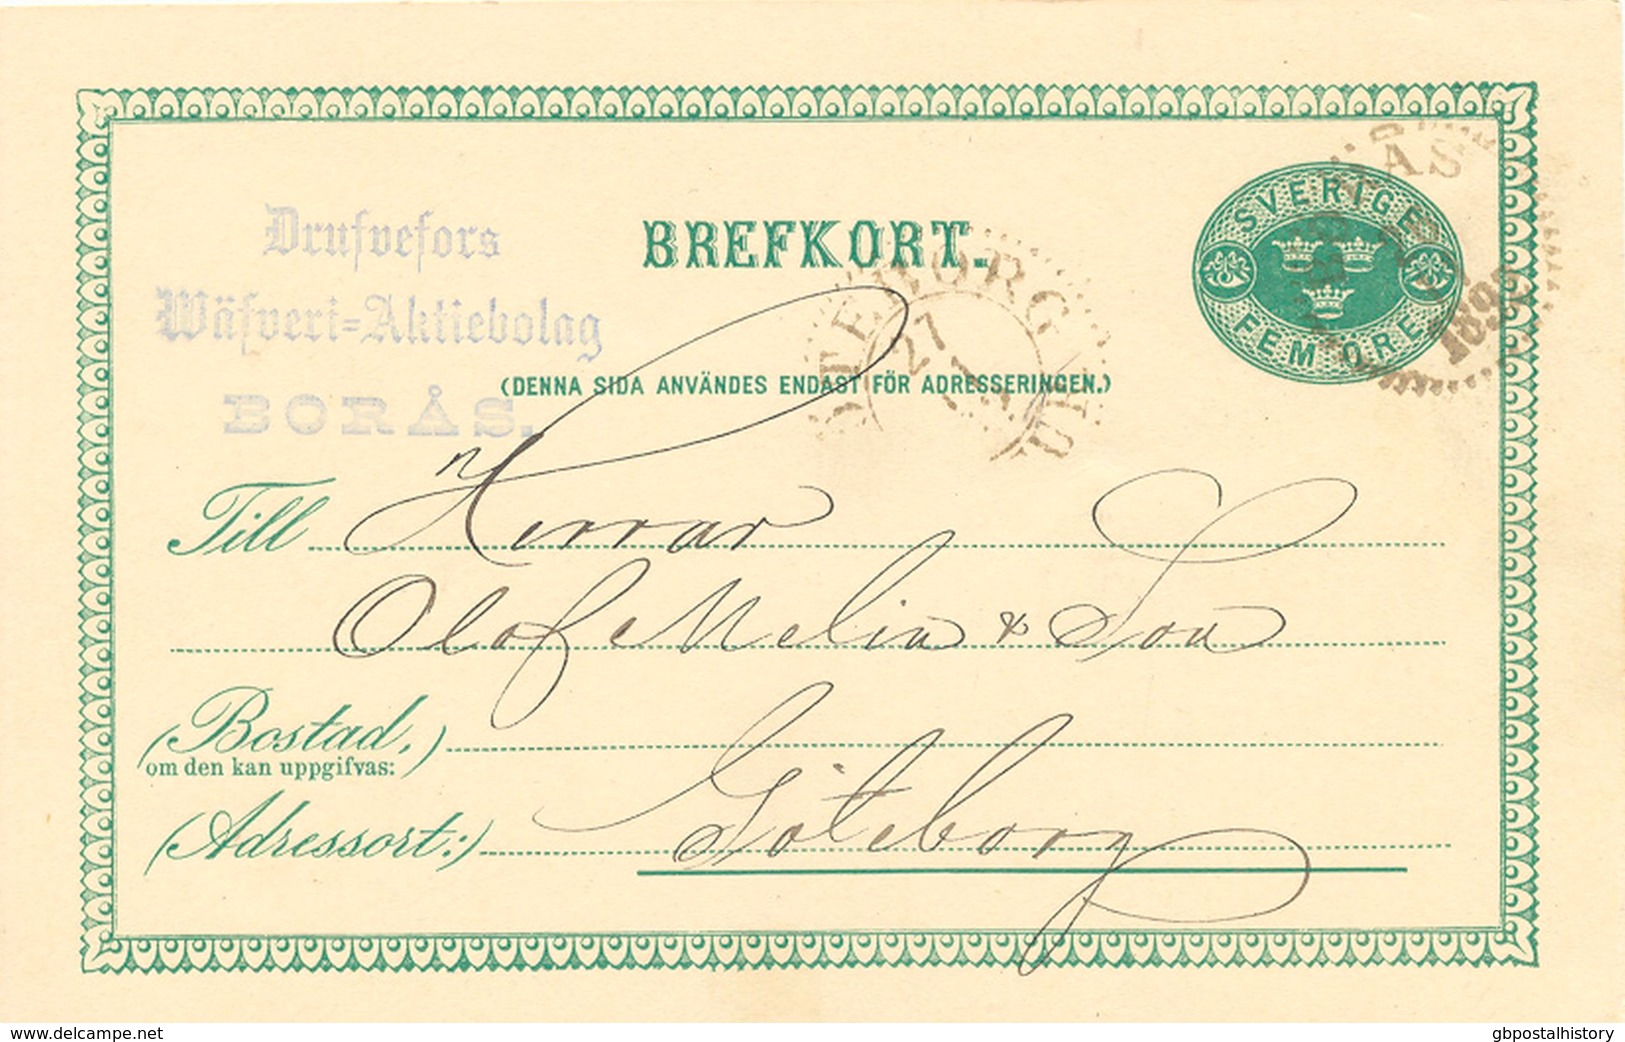 Drufvefors
Wäfveri=Aktiebolag
BORÅS.
BREFKORT.
SVERIGE
FEM ÖRE
1893
27
(DENNA SIDA ANVÄNDES ENDAST FÖR ADRESSERINGEN.)
Till Herrar
Olof Melin & Son
(Bostad,)
om den kan uppgifvas:
(Adressort:) Göteborg
www.delcampe.net
gbpostalhistory